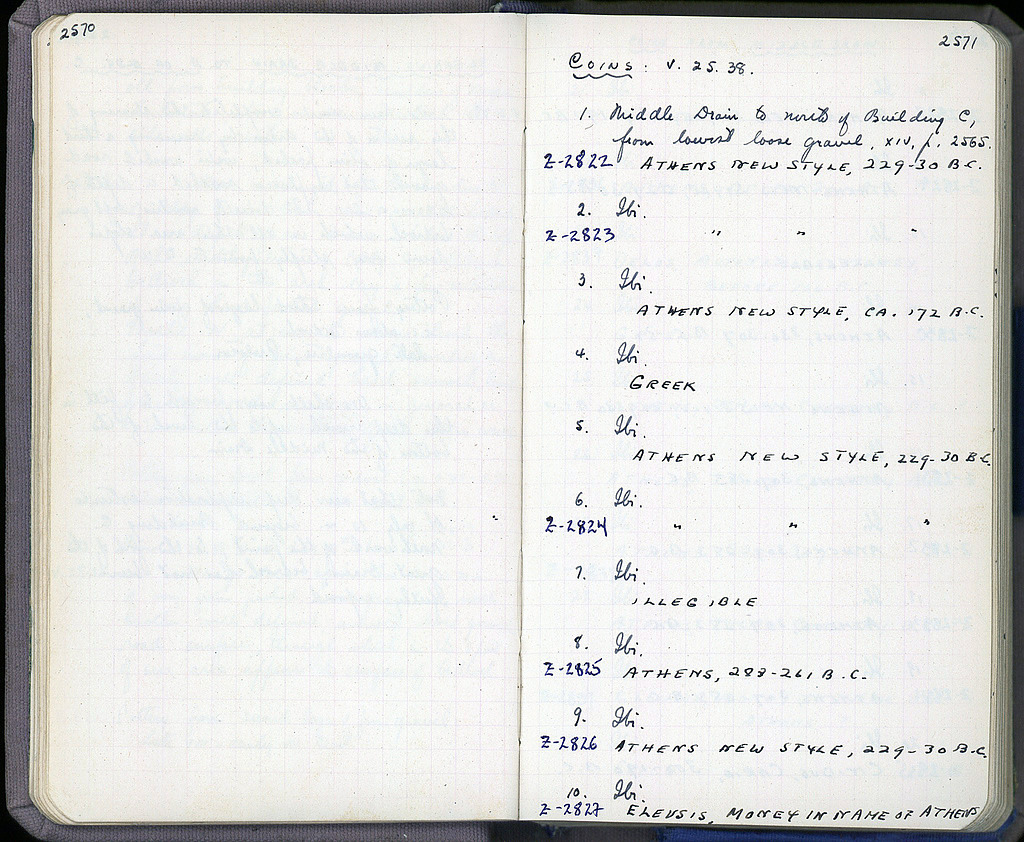 2570
2571
COINS: V. 25. 38.
1. Middle Drain to north of Building C,
from lowest loose gravel, XIV, p. 2565.
Z-2822 ATHENS NEW STYLE, 229-30 B.C.
2. Ibi.
Z-2823 " " "
3. Ibi.
ATHENS NEW STYLE, CA. 172 B.C.
4. Ibi.
GREEK
5. Ibi.
ATHENS NEW STYLE, 229-30 B.C.
6. Ibi.
Z-2824 " " "
7. Ibi.
ILLEGIBLE
8. Ibi.
Z-2825 ATHENS, 283-261 B.C.
9. Ibi.
Z-2826 ATHENS NEW STYLE, 229-30 B.C.
10. Ibi.
Z-2827 ELEUSIS, MONEY IN NAME OF ATHENS